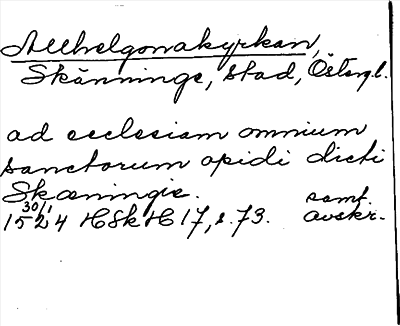 Allhelgonakyrkan,
Skänninge, stad, Östergl.
ad ecclesiam omnium
sanctorum opidi dicti
Skæningie. samt.
30/1
1524 HSkH 17, s. 73. avskr.